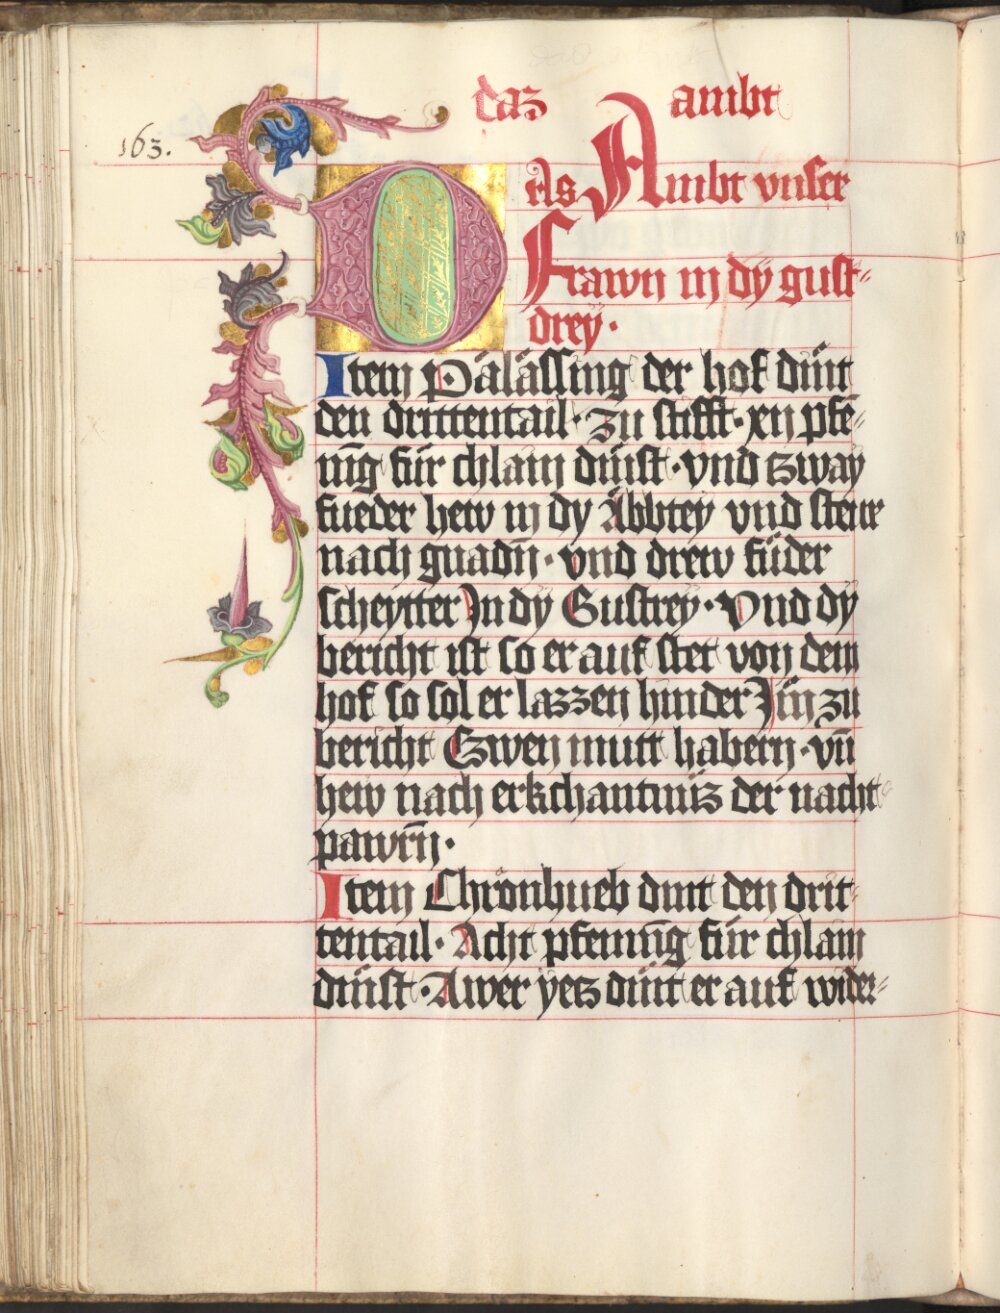 daz ambt
163.
DAs Ambt vnser
Frawn in dÿ gust-
dreÿ.
Item Pälässing der hof dint
den drittentail. Zu stifft. xij pfē-
nīg für chlain dinst. vnd tzwaÿ
fueder hew in dÿ Abbteÿ vnd stewr
nach gnadn̄. vnd drew füder
scheÿtter Jn dÿ Gustreÿ. Vnd dÿ
bericht ist so er auf stet von dem
hof so sol er lazzen hinder Jm zu
bericht Czwen mutt habern. vn̄
hew nach erkchantnüz der nacht
pawrn̄.
Item Chronhueb dint den drit-
tentail. Acht pfennīg für chlain
dinst. Awer ÿetz dint er auf wider-